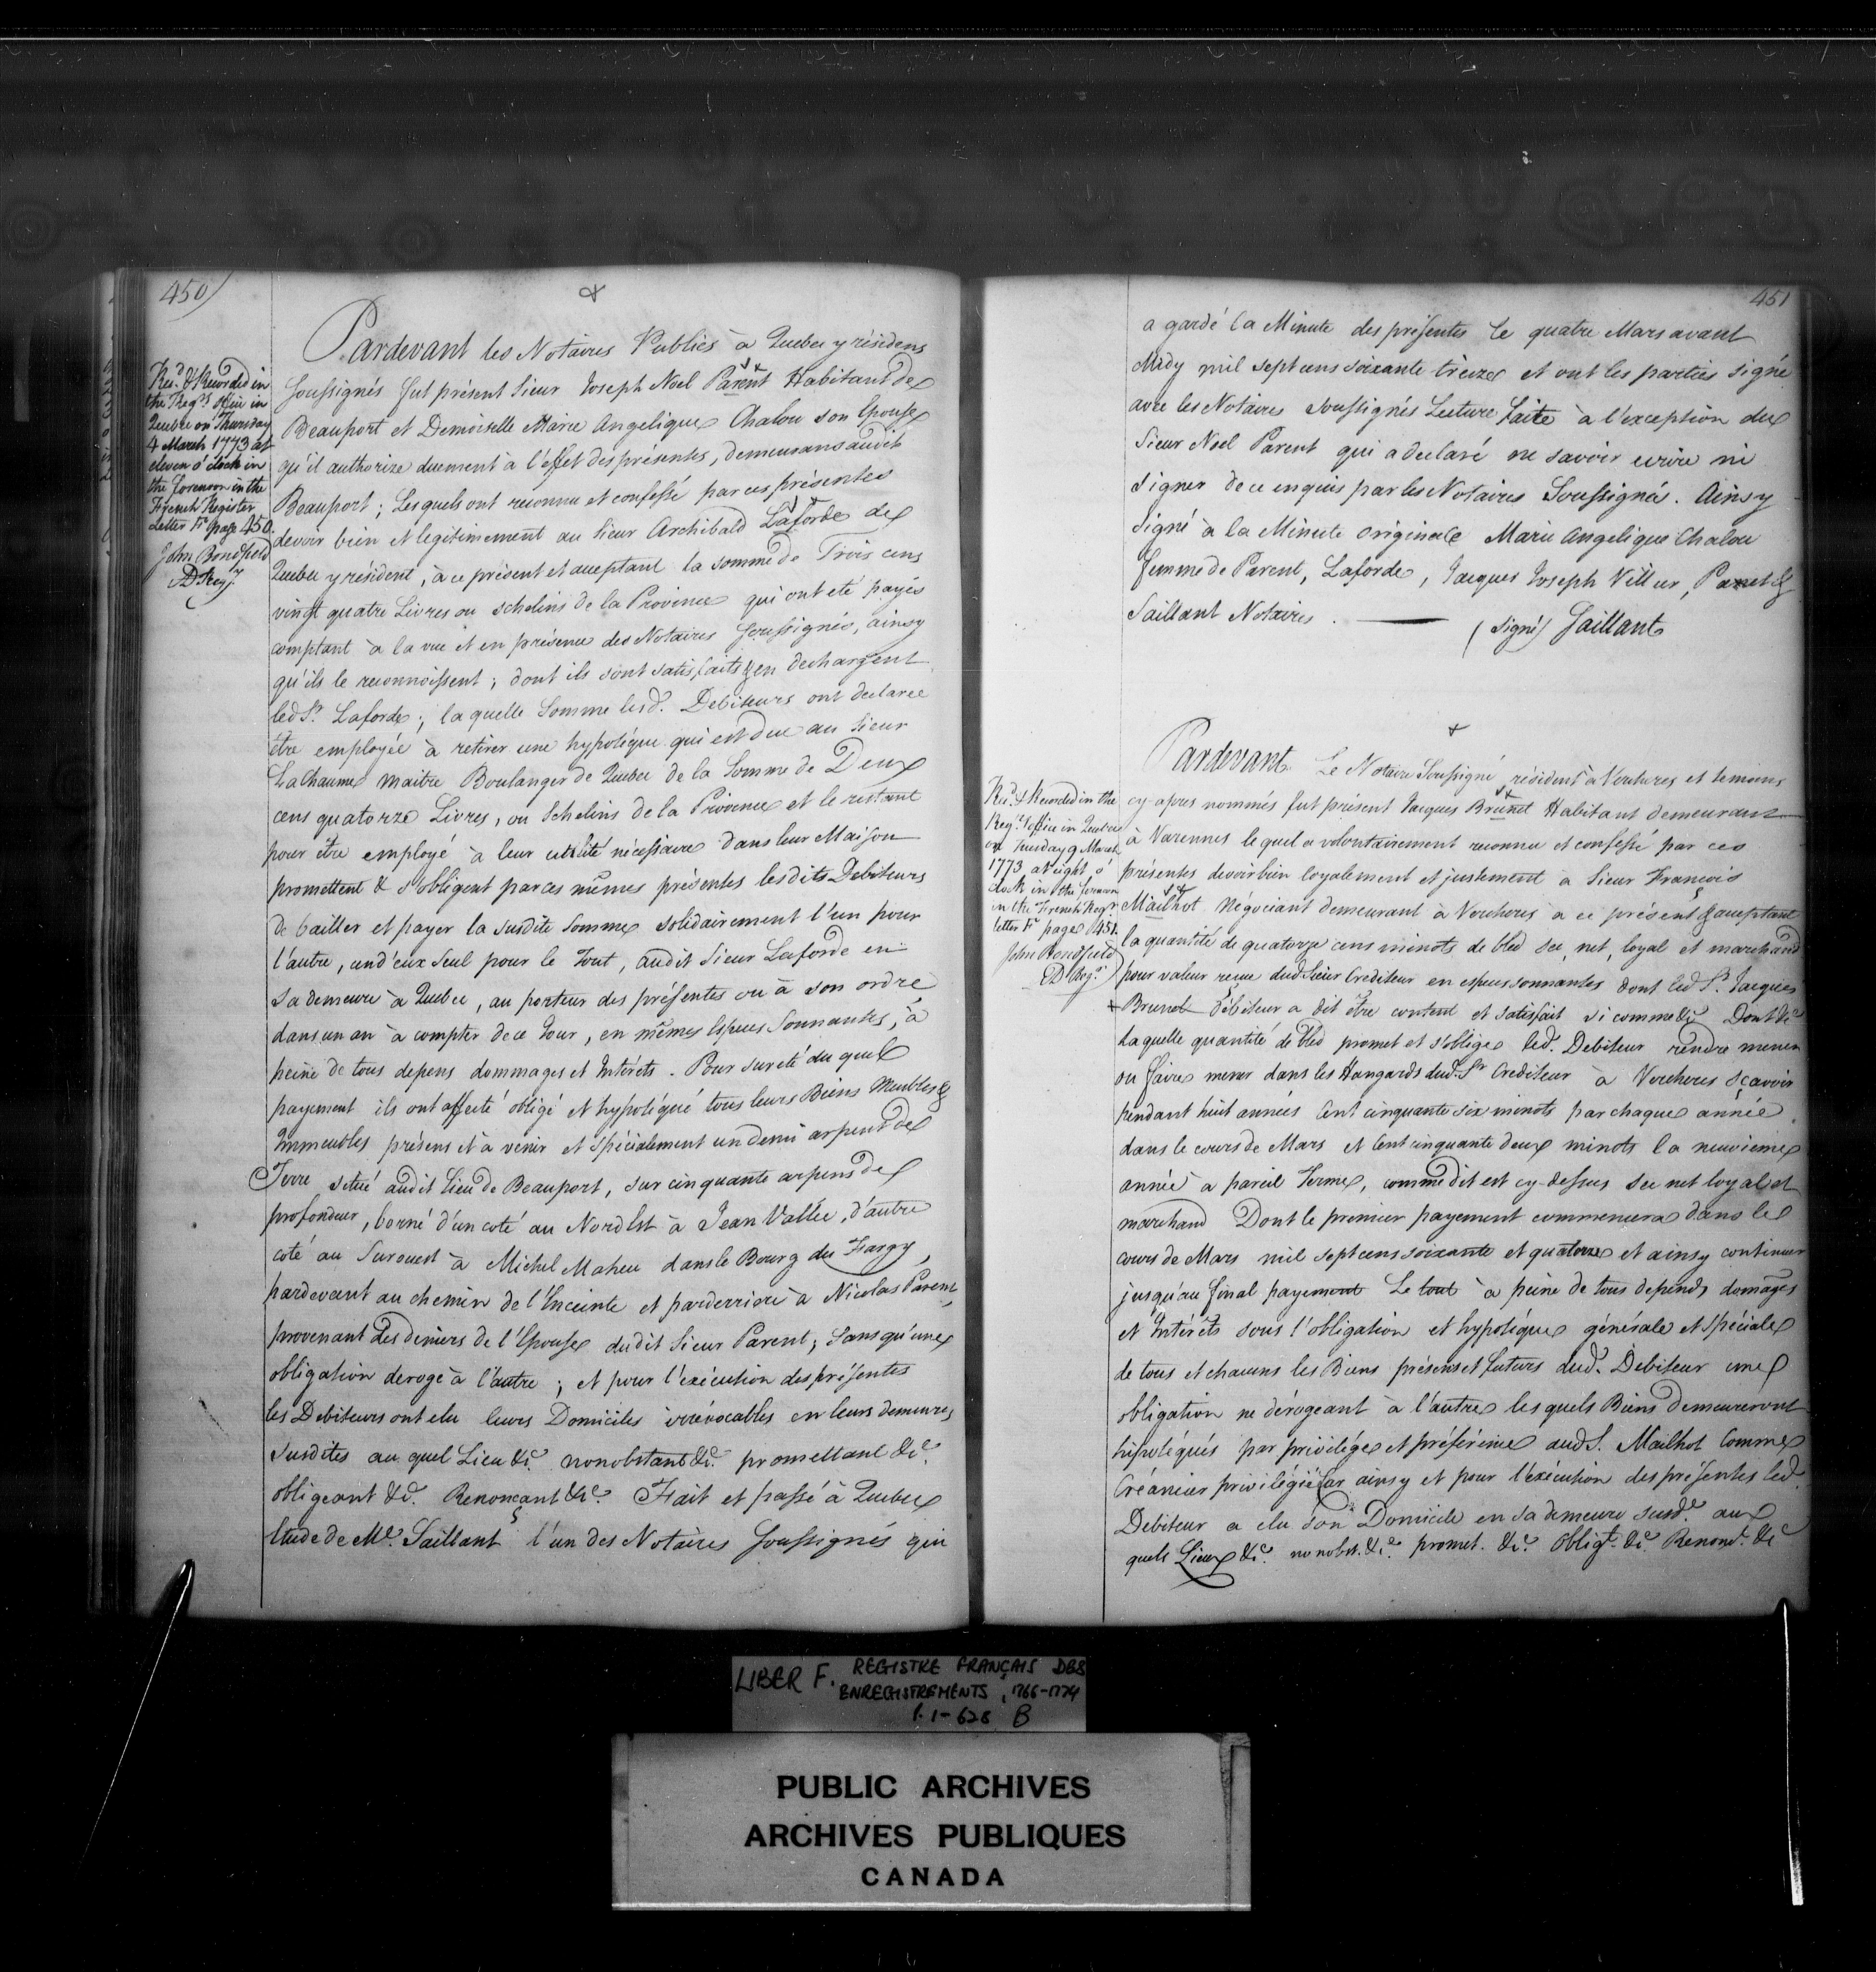 450)
Rec.d & Recorded in
the Reg.rs Office in
Quebec on Thursday
4 March 1773 at
eleven o'clock in
the forenoon in the
French Register
Letter F. page 450.
John Bondfield
D. Reg.y
Pardevant les Notaires Publics à Quebec y résidens
soussignés fut présent Sieur Joseph Noel Parent Habitant de
Beauport et Demoiselle Marie Angelique Chalou son Epouse
qu'il authorize duement à l'effet des présentes, demeurans audit
Beauport; Lesquels ont reconnu et confessé par ces présentes
devoir bien et legitimement au Sieur Archibald Laforde de
Quebec y résident, à ce présent et acceptant la somme de Trois cens
vingt quatre Livres ou schelins de la Province qui ont été payés
comptant à la vue et en présence des Notaires soussignés, ainsy
qu'ils le reconnoissent; dont ils sont satisfaits & en dechargent
led. Sr. Laforde; laquelle Somme lesd. Debiteurs ont declaree
être employée à retirer une hypotéque qui est due au Sieur
La Chaume Maitre Boulanger de Quebec de la Somme de Deux
cens quatorze Livres, ou Schelins de la Province et le restant
pour être employé à leur utilité nécéssaire dans leur Maison
promettent & s'obligent par ces mêmes présentes lesdits Debiteurs
de bailler et payer la susdite Somme solidairement l'un pour
l'autre, un d'eux seul pour le Tout, audit Sieur Laforde en
sa demeure à Quebec, au porteur des présentes ou à son ordre
dans un an à compter de ce Jour, en mêmes Especes Sonnantes, à
peine de tous depens dommages et Intérêts. Pour sureté du quel
payement ils ont affecté obligé et hypotéqué tous leurs Biens Meubles &
Immeubles présens et à venir et spécialement un demi arpent de
Terre situé audit Lieu de Beauport, sur cinquante arpens de
profondeur, borné d'un coté au Nord Est à Jean Vallée, d'autre
coté au Surouest à Michel Maheu dans le Bourg du Fargy,
pardevant au chemin de l'Enceinte et parderriere à Nicolas Parent,
provenant des deniers de l'Epouse dudit Sieur Parent; Sans qu'une
obligation deroge à l'autre; et pour l'exécution des présentes
les Debiteurs ont elu leurs Domiciles irrévocables en leurs demeures
susdites au quel Lieu &c. nonobstant &c. promettant &c.
obligeant &c. Renonçant &c. Fait et passé à Quebec
Etude de Me. Saillant l'un des Notaires soussignés qui
451
a gardé la Minute des présentes le quatre Mars avant
Midy mil sept cens soixante treize et ont les parties signé
avec les Notaires soussignés Lecture faite à l'exception du
Sieur Noel Parent qui a declaré ne savoir ecrire ni
signer de ce enquis par les Notaires Soussignés. Ainsy
signé à la Minute originale Marie Angelique Chalou
femme de Parent, Laforde, Jacques Joseph Villeur, Panet &
Saillant Notaires.
(signé) Saillant
Rec.d & Recorded in the
Reg.rs Office in Quebec
on Tuesday 9 March
1773 at eight o'
clock in the forenoon
in the French Reg.r
letter F. page 451.
John Bondfield
D. Reg.r
Pardevant Le Notaire Soussigné résident à Vercheres et temoins
cy-apres nommés fut présent Jacques Brunet Habitant demeurant
à Varennes lequel a volontairement reconnu et confessé par ces
présentes devoir bien loyalement et justement à Sieur François
Mailhot Négociant demeurant à Vercheres à ce présent & acceptant
la quantité de quatorze cens minots de bled sec, net, loyal et marchand
pour valeur reçue dud. Sieur Crediteur en especes sonnantes dont led. Sr. Jacques
Brunet Débiteur a dit être content et satisfait si comme &c. Dont &c
Laquelle quantité de bled promet et s'oblige led. Debiteur rendre mener
ou faire mener dans les Hangards dud. Sr. Crediteur à Vercheres sçavoir
pendant huit années Cent cinquante six minots par chaque année
dans le cours de Mars et Cent cinquante deux minots la neuvieme
année à pareil Terme, comme dit est cy-dessus sec net loyal et
marchand Dont le premier payement commencera dans le
cours de Mars mil sept cens soixante et quatorze et ainsy continuer
jusqu'au final payement Le tout à peine de tous depends domages
et Intérêts sous l'obligation et hypotéque générale et spéciale
de tous et chacuns les Biens présens et futurs dud. Debiteur une
obligation ne dérogeant à l'autre les quels Biens demeureront
hipotéqués par priviléges et préférence aud. S. Mailhot Comme
Créancier privilégié Car ainsy et pour l'exécution des présentes led.
Debiteur a elu son Domicile en sa demeure susd.e aux
quels Lieux &c. nonobst. &c. promet. &c. Obligt. &c. Renond. &c
LIBER F. REGISTRE FRANÇAIS DES
ENREGISTREMENTS, 1766-1774
P. 1-628 B
PUBLIC ARCHIVES
ARCHIVES PUBLIQUES
CANADA